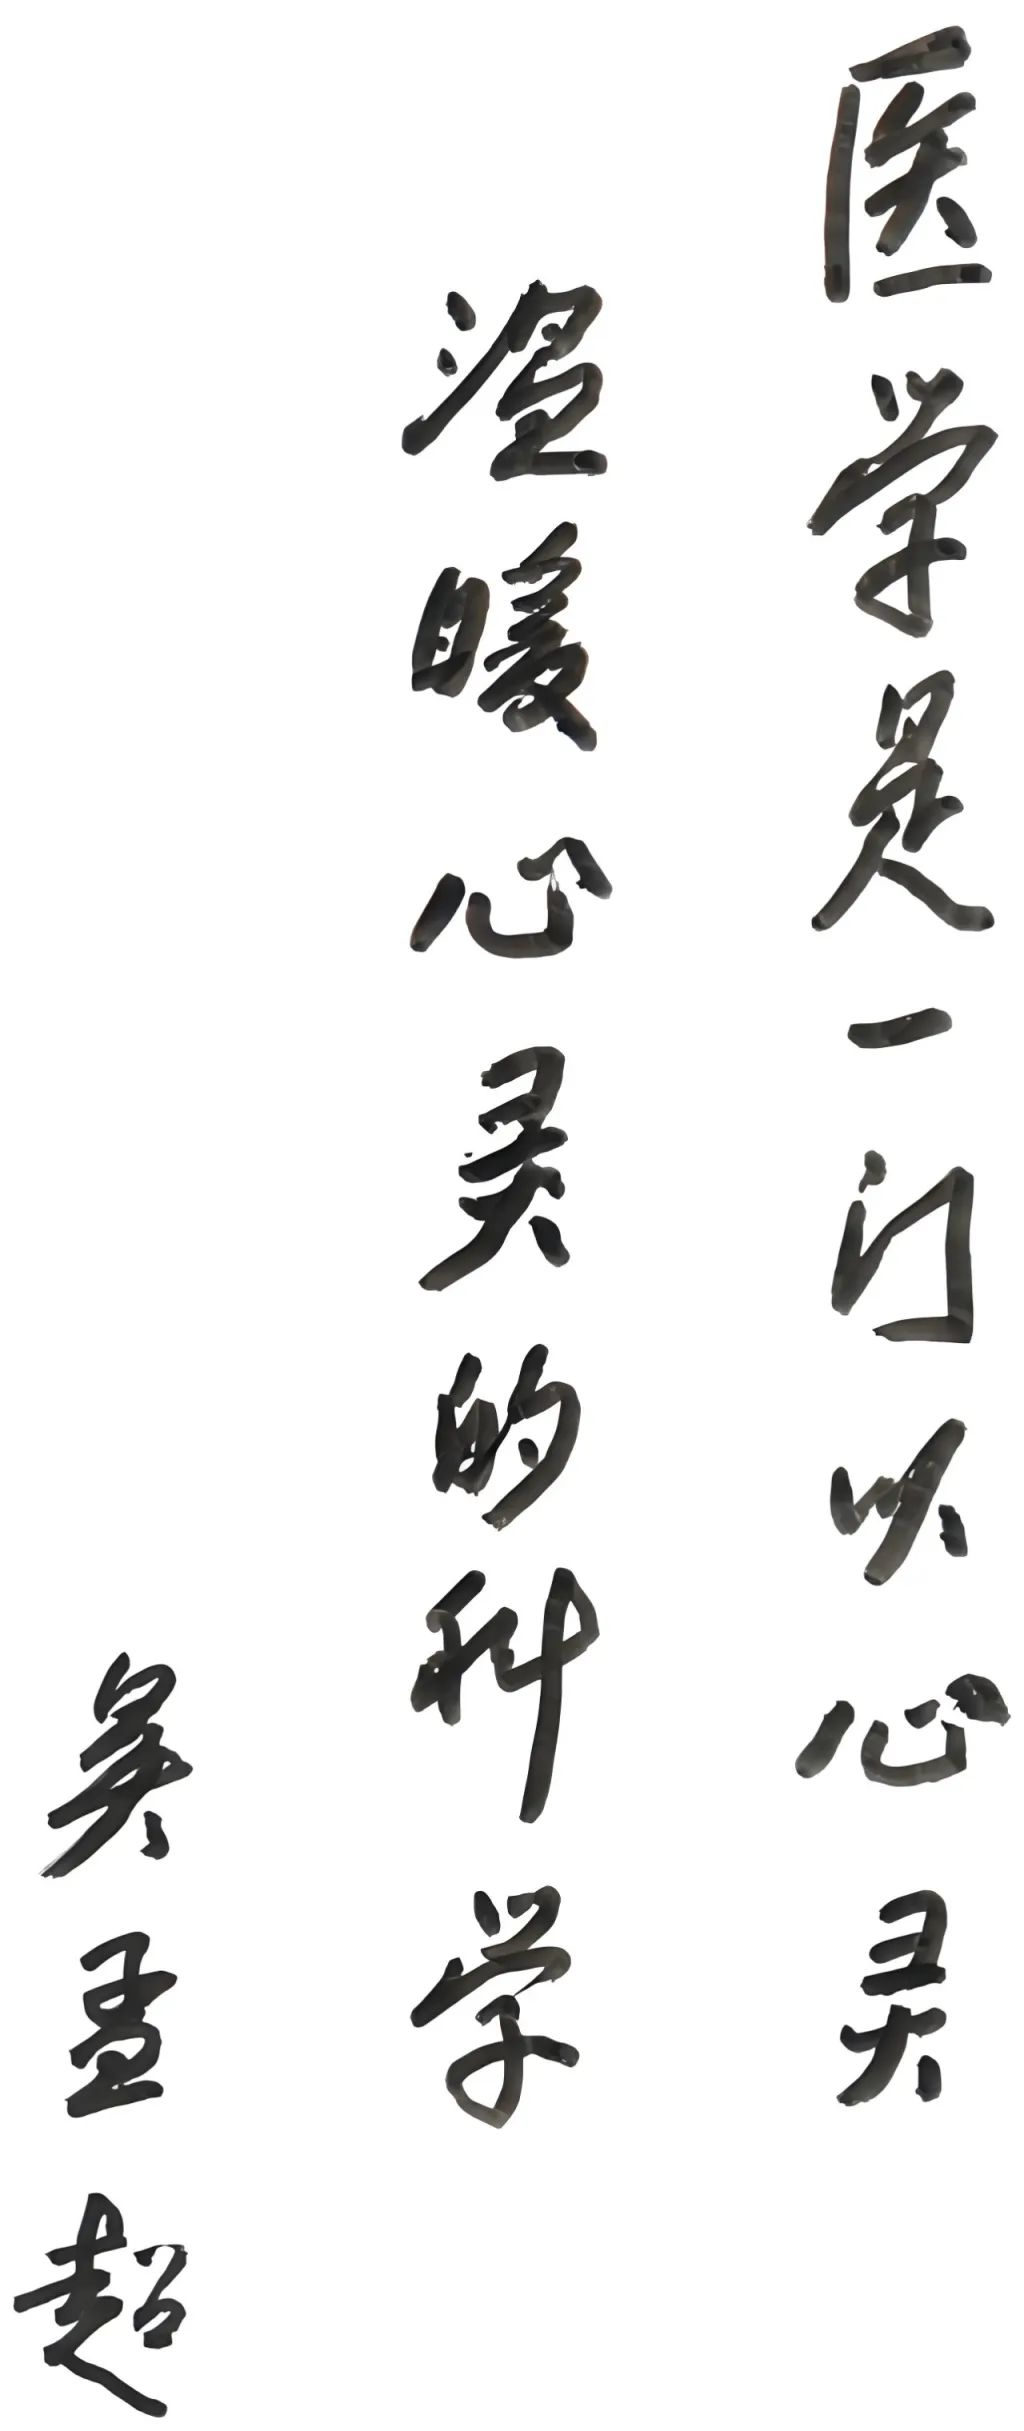 医学是一门以心灵
温暖心灵的科学
吴孟超